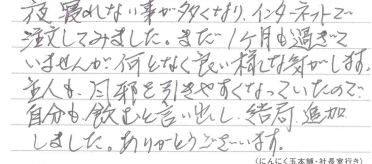 夜寝れない事が多くなり、インターネットで
注文してみました。まだ1ケ月も過ぎて
いませんが、何となく良い様な気がします。
主人も、風邪を引きやすくなっていたので
自分も飲むと言い出し、結局、追加
しました。ありがとうございます。
(にんにく玉本舗・社長室行き)